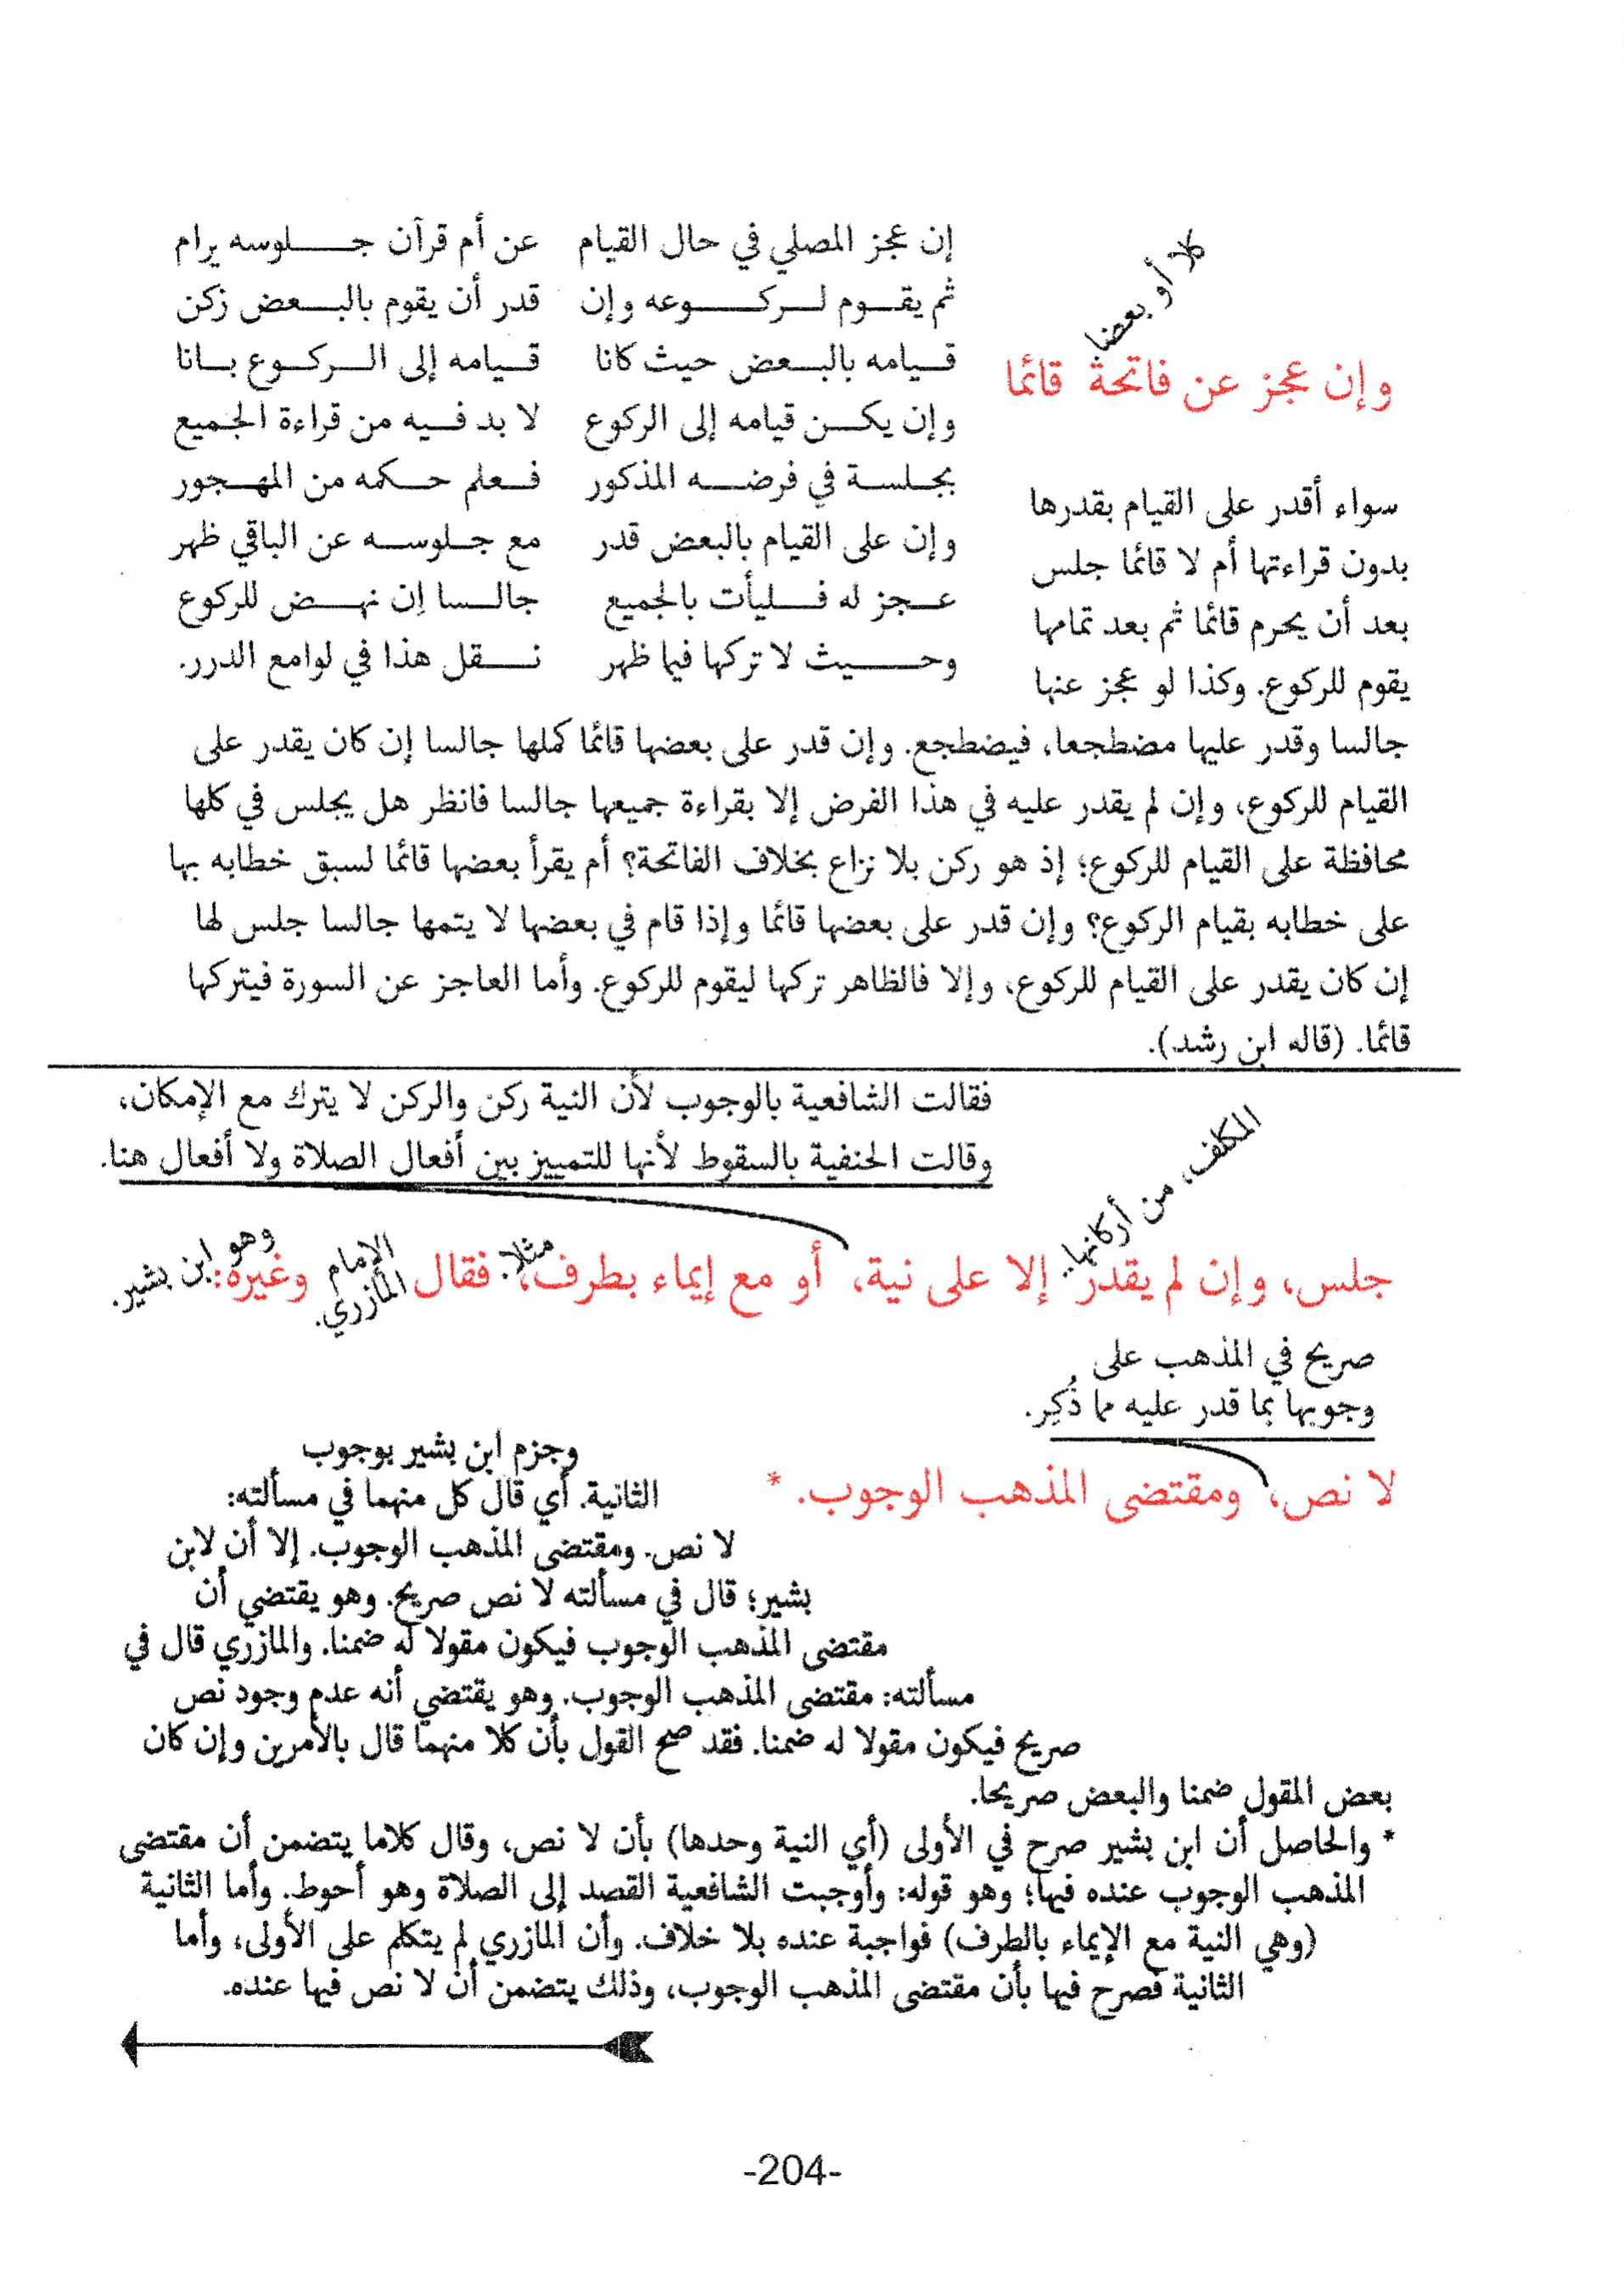 إن عجز المصلي في حال القيام عن أم قرآن جلوسه يرام
ثم يقوم لركوعه وإن قدر أن يقوم بالبعض زكن
قيامه بالبعض حيث كانا قيامه إلى الركوع بانا
وإن يكن قيامه إلى الركوع لا بد فيه من قراءة الجميع
بجلسة في فرضه المذكور فعلم حكمه من المهجور
وإن على القيام بالبعض قدر مع جلوسه عن الباقي ظهر
عجز له فليأت بالجميع جالسا إن نهض للركوع
وحيث لا تركها فيما ظهر نقل هذا في لوامع الدرر.
كلا أو بعضا
وإن عجز عن فاتحة قائما
سواء أقدر على القيام بقدرها
بدون قراءتها أم لا قائما جلس
بعد أن يحرم قائما ثم بعد تمامها
يقوم للركوع. وكذا لو عجز عنها
جالسا وقدر عليها مضطجعا، فيضطجع. وإن قدر على بعضها قائما كملها جالسا إن كان يقدر على
القيام للركوع، وإن لم يقدر عليه في هذا الفرض إلا بقراءة جميعها جالسا فانظر هل يجلس في كلها
محافظة على القيام للركوع؛ إذ هو ركن بلا نزاع بخلاف الفاتحة؟ أم يقرأ بعضها قائما لسبق خطابه بها
على خطابه بقيام الركوع؟ وإن قدر على بعضها قائما وإذا قام في بعضها لا يتمها جالسا جلس لها
إن كان يقدر على القيام للركوع، وإلا فالظاهر تركها ليقوم للركوع. وأما العاجز عن السورة فيتركها
قائما. (قاله ابن رشد).
فقالت الشافعية بالوجوب لأن النية ركن والركن لا يترك مع الإمكان،
وقالت الحنفية بالسقوط لأنها للتمييز بين أفعال الصلاة ولا أفعال هنا.
المكلف، من أركانها..
مثلا.
الإمام المازري.
وهو ابن بشير.
جلس، وإن لم يقدر إلا على نية، أو مع إيماء بطرف، فقال وغيره:
صريح في المذهب على
وجوبها بما قدر عليه مما ذُكِر.
لا نص، ومقتضى المذهب الوجوب. *
وجزم ابن بشير بوجوب
الثانية. أي قال كل منهما في مسألته:
لا نص. ومقتضى المذهب الوجوب. إلا أن لابن
بشير؛ قال في مسألته لا نص صريح. وهو يقتضي أن
مقتضى المذهب الوجوب فيكون مقولا له ضمنا. والمازري قال في
مسألته: مقتضى المذهب الوجوب. وهو يقتضي أنه عدم وجود نص
صريح فيكون مقولا له ضمنا. فقد صح القول بأن كلا منهما قال بالأمرين وإن كان
بعض المقول ضمنا والبعض صريحا.
* والحاصل أن ابن بشير صرح في الأولى (أي النية وحدها) بأن لا نص، وقال كلاما يتضمن أن مقتضى
المذهب الوجوب عنده فيها؛ وهو قوله: وأوجبت الشافعية القصد إلى الصلاة وهو أحوط. وأما الثانية
(وهي النية مع الإيماء بالطرف) فواجبة عنده بلا خلاف. وأن المازري لم يتكلم على الأولى، وأما
الثانية فصرح فيها بأن مقتضى المذهب الوجوب، وذلك يتضمن أن لا نص فيها عنده.
-204-